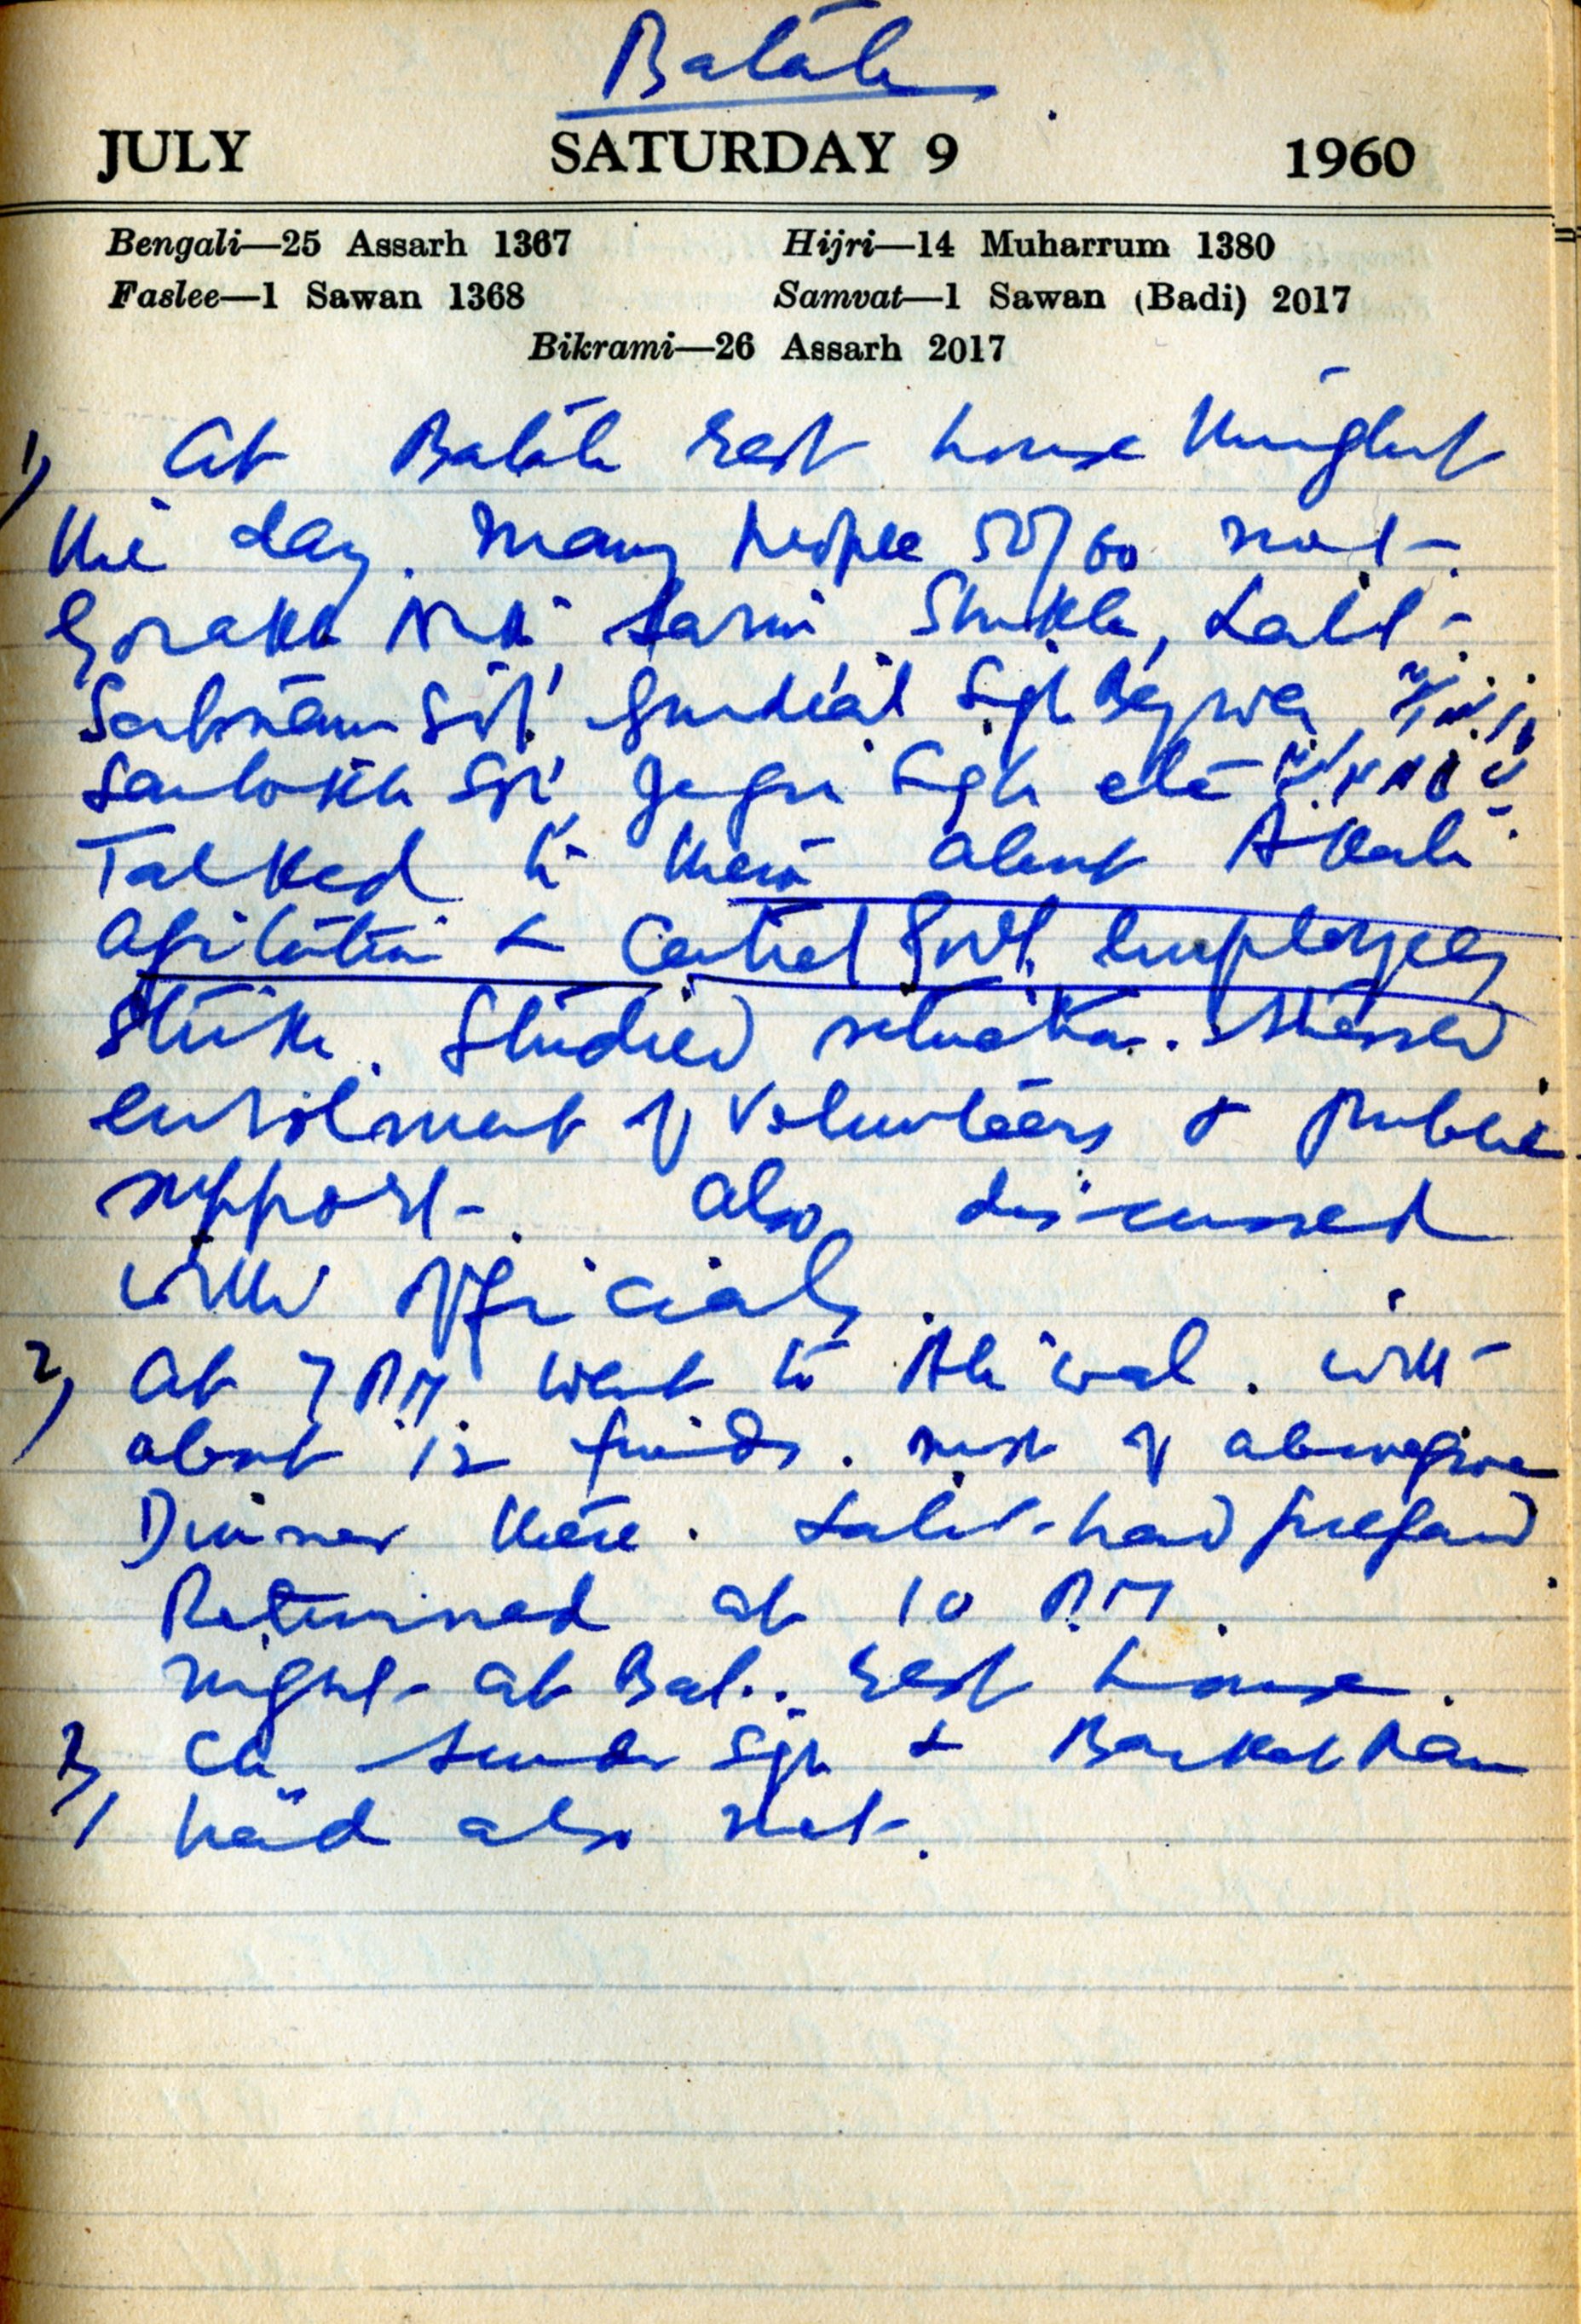 Batala
JULY SATURDAY 9 1960
Bengali—25 Assarh 1367 Hijri—14 Muharrum 1380
Faslee—1 Sawan 1368 Samvat—1 Sawan (Badi) 2017
Bikrami—26 Assarh 2017
1) At Batala rest house throughout
the day. Many people 50/60 met.
Gorakh Nath Shukla, Lalit
Satnam Singh Gurdial Singh
Santokh Singh Singh etc
Talked to them about Akali
agitation & Central Govt. employees
strike. Studied situation. Stressed
enrolment of volunteers & public
support. Also discussed
with officials.
2) At 7 P.M. went to Aliwal. With
about 12 friends. Most of above gave
Dinner there. Lalit had prepared
Returned at 10 P.M.
night at Bat. rest house.
3) Ch Sunder Singh & Barkat Ram
had also met.